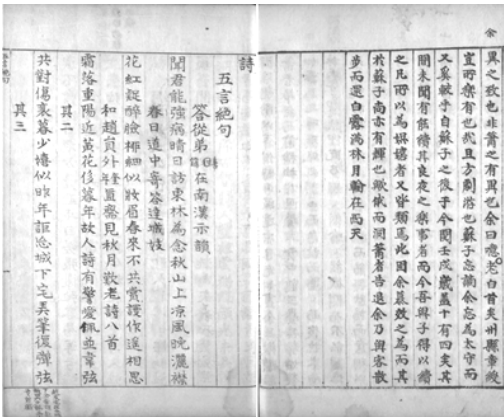 異之致也非簫之有異也余曰噫老白首矣州縣章綬
宜所樂有也哉且方劇浴也蘇子忘謫余忘為太守而
又異乎自蘇子之後于今閱壬戌歲蓋十有四矣其
間未聞有能續其良夜之樂事者而今吾與子得以續
之凡所以為娛嬉者又皆類焉此固余竊效之為而其
於蘇子尚亦有輝也歟俄而洞簫者告退余乃與客散
步而還白露滿林月輪在西天
詩
五言絕句
答從弟在南漢示韻
聞君能強病晴日訪東林為念秋山上凉風晚灑襟
春日道中寄答達城妓
花紅醒醉臉柳細似妝眉春來不共賞謾作遠相思
和趙員外見秋月歎老詩八首
霜落重陽近黃花侈暮年故人詩有警愛佩並韋弦
其二
共對傷衰暮少嬉似昨年詎忍城下宅弄筆復彈弦
其三